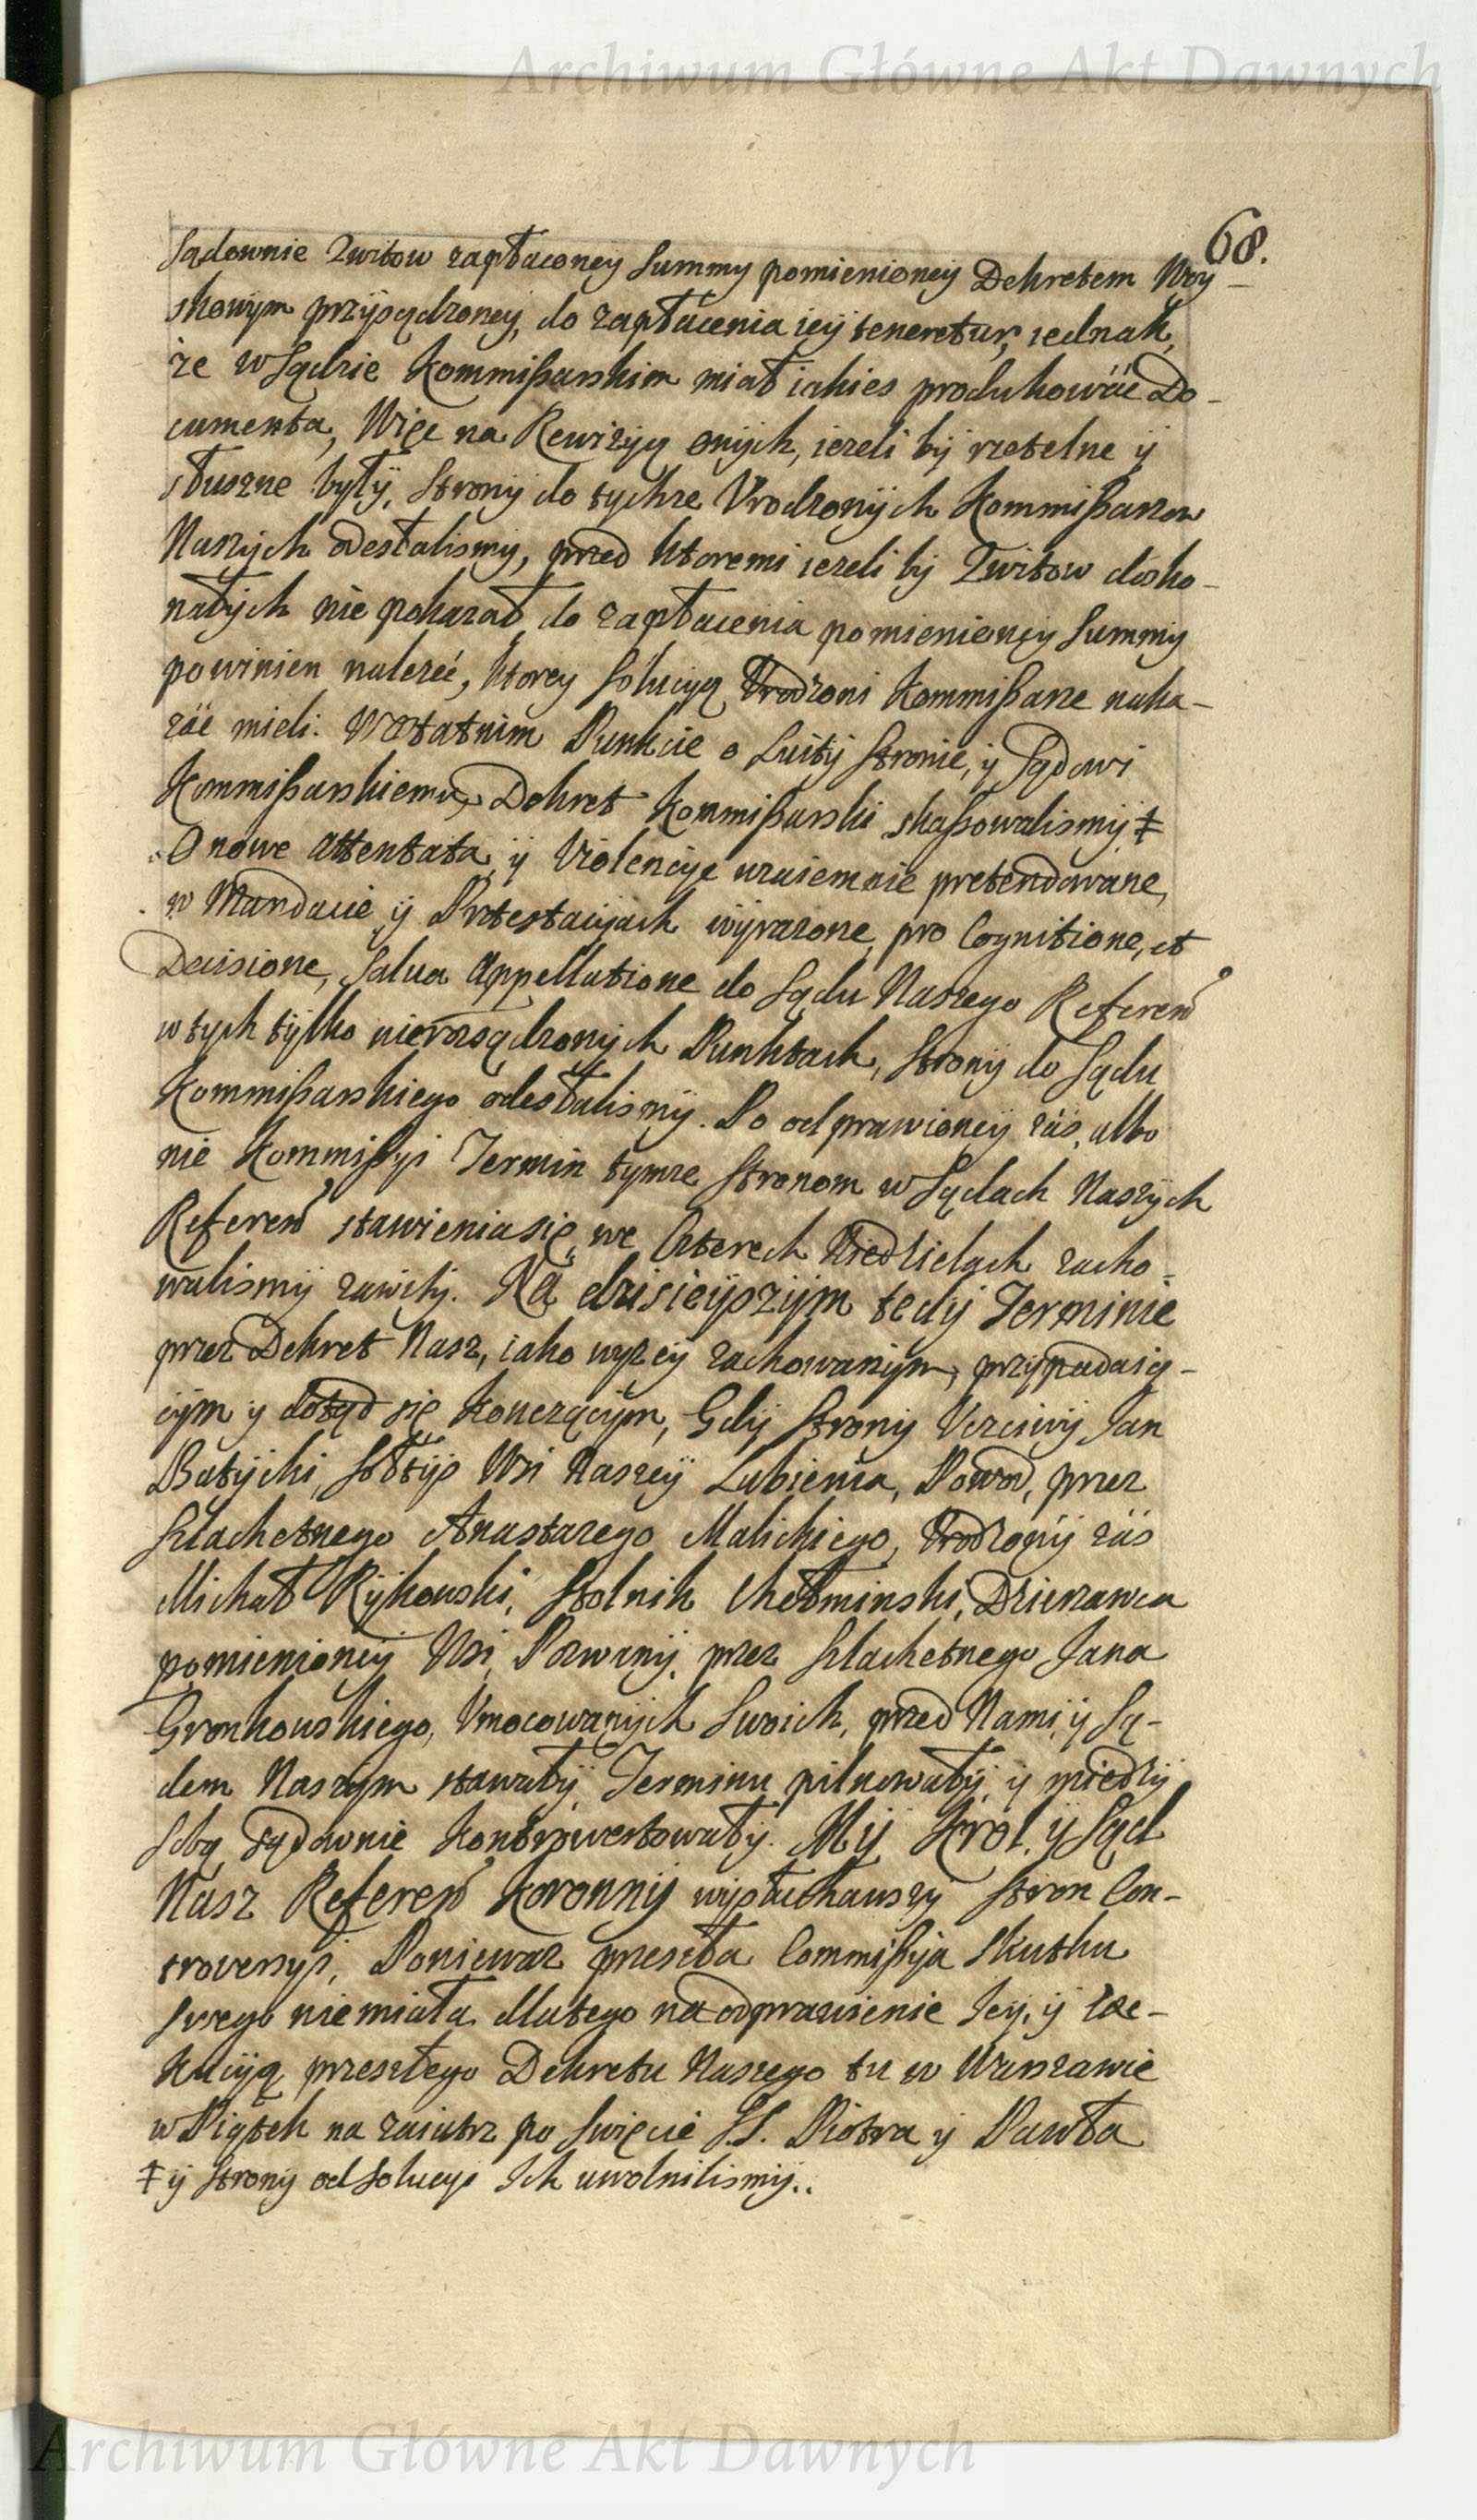 Archiwum Główne Akt Dawnych
68.
Sądownie Zwitow zapłaconey Summy pomienioney Dekretem Woy-
skowym przysądzoney, do zapłacenia iey teneretur, iednak,
że w Sądzie Kommißarskim miał iakies produkowáć Do-
cumenta, Więc na Rewizyą onych, iezeli by rzetelne y
słuszne były, Strony do tychze Vrodzonych Kommißarzow
Naszych odesłalismy, przed ktoremi iezeli by Zwitow dosko-
nałych nie pokazał, do zapłacenia pomienioney Summy
powinien nalezeć, ktorey Solucyą Vrodzoni Kommißarze naka-
záć mieli. W ostatnim Punkcie o Luity Stronie, y Sądowi
Kommißarskiemu, Dekret Kommißarski skaßowalismy ‡
O nowe attentata y Violencye wzaiemnie pretendowane,
w Mandacie y Protestacyach wyrazone, pro Cognitione, et
Decisione, Salua Appellatione do Sądu Naszego Referen̄
w tych tylko nierozsądzonych Punktach, Strony do Sądu
Kommißarskiego odesłalismy. Po odprawioney záś, albo
nie Kommißyi Termin tymze Stronom w Sądach Naszych
Referen̄ stawienia się, we Czterech Niedzielach zacho-
walismy zawity. Na dzisieyszym tedy Terminie
przez Dekret Nasz, iako wyzey zachowanym, przypadaią-
cym y dotąd się Konczącym, Gdy Strony Vczciwy Jan
Batycki, Sołtys Wsi Naszey Lubienia, Powod, przez
Szlachetnego Anastazego Malickiego, Vrodzony záś
Michał Rykowski, Stolnik Chełminski, Dzierzawca
pomienioney Wsi, Pozwany, przez Szlachetnego Jana
Gronkowskiego, Vmocowanych Swoich, przed Nami, y Są-
dem Naszym stawały, Terminu pilnowały, y miedzy
Sobą Sądownie Kontrowertowały. My Krol, y Sąd
Nasz Referen̄ Koronny wysłuchawszy Stron Con-
troversyi, Poniewaz przeszła Commißyja Skutku
Swego nie miała dlatego na odprawienie Jey, y Exe-
kucyą przeszłego Dekretu Naszego tu w Warszawie
w Piątek na zaiutrz po Swięcie S.S. Piotra y Pawła
‡ y Strony od Solucyi Ich uwolnilismy..
Archiwum Główne Akt Dawnych